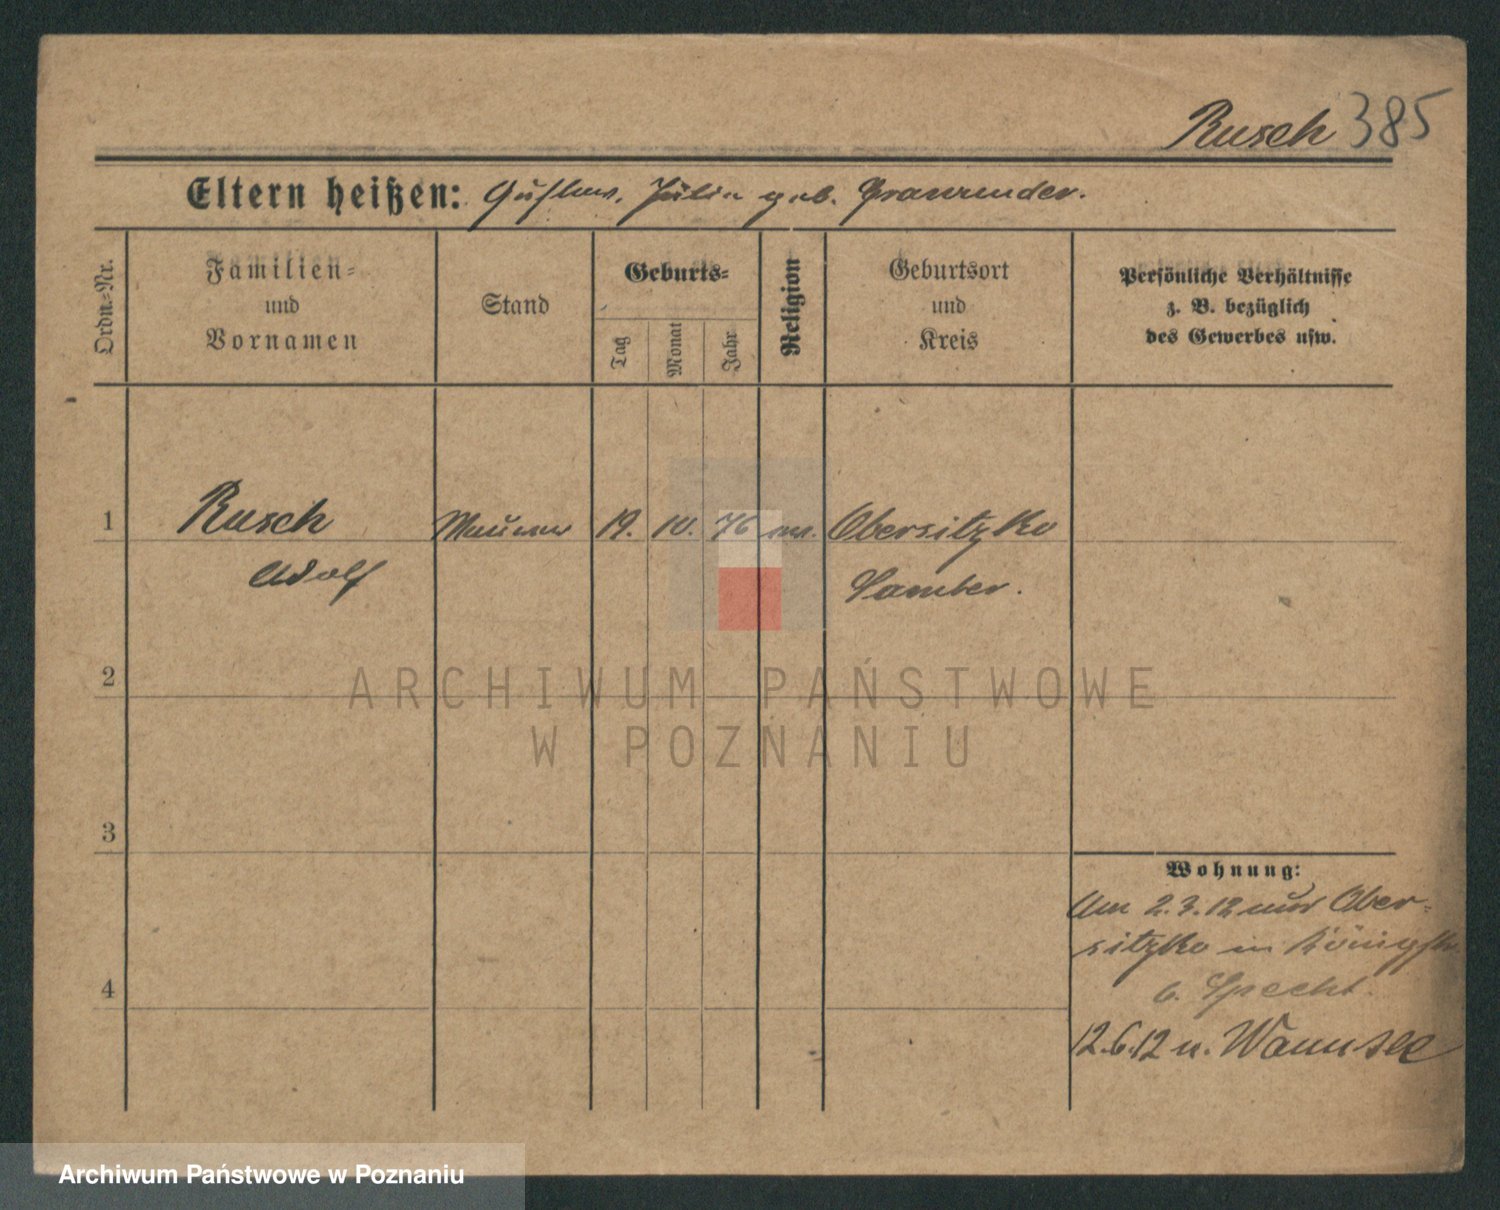 Rusch 385
Eltern heißen: Gustav, Julia geb. Grawunder.
Ordn.-Nr.
Familien-
und
Vornamen
Stand
Geburts-
Tag
Monat
Jahr
Religion
Geburtsort
und
Kreis
Persönliche Verhältnisse
z. B. bezüglich
des Gewerbes usw.
1 Rusch Maurer 19. 10. 76 Obersitzko
Adolf Samter.
2
3
4
Wohnung:
Am 2.3.12 aus Ober-
sitzko in Königstr.
b. Specht.
12.6.12 n. Wannsee
ARCHIWUM PAŃSTWOWE
W POZNANIU
Archiwum Państwowe w Poznaniu